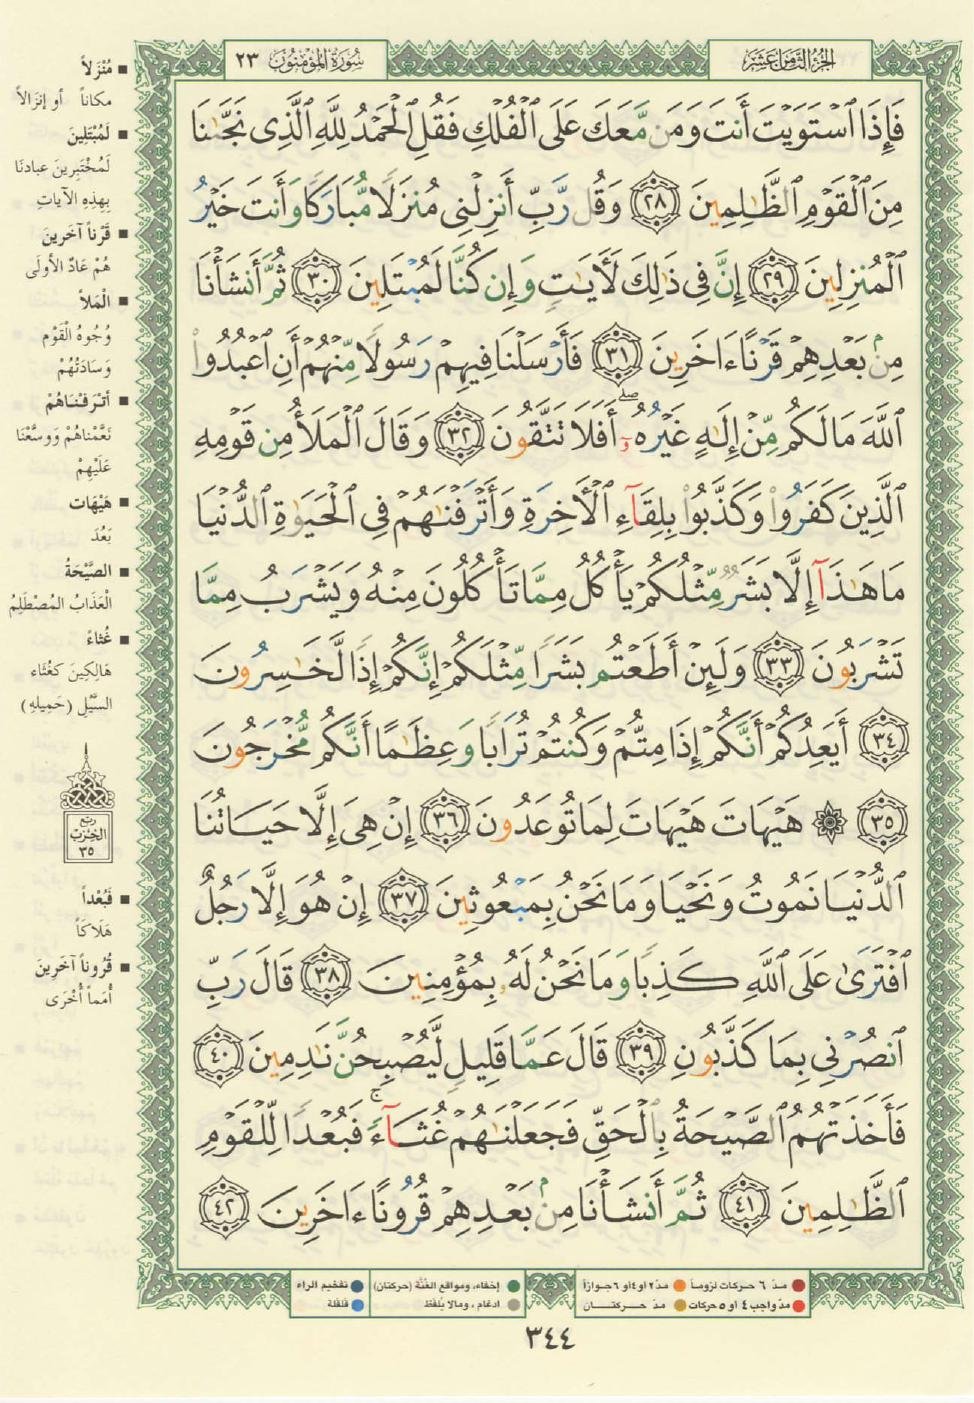 الجزء الثامن عشر
سورة المؤمنون ٢٣
فَإِذَا ٱسْتَوَيْتَ أَنتَ وَمَن مَّعَكَ عَلَى ٱلْفُلْكِ فَقُلِ ٱلْحَمْدُ لِلَّهِ ٱلَّذِى نَجَّىٰنَا
مِنَ ٱلْقَوْمِ ٱلظَّـٰلِمِينَ ٢٨ وَقُل رَّبِّ أَنزِلْنِى مُنزَلًا مُّبَارَكًا وَأَنتَ خَيْرُ
ٱلْمُنزِلِينَ ٢٩ إِنَّ فِى ذَٰلِكَ لَـَٔايَـٰتٍ وَإِن كُنَّا لَمُبْتَلِينَ ٣٠ ثُمَّ أَنشَأْنَا
مِنۢ بَعْدِهِمْ قَرْنًا ءَاخَرِينَ ٣١ فَأَرْسَلْنَا فِيهِمْ رَسُولًا مِّنْهُمْ أَنِ ٱعْبُدُوا۟
ٱللَّهَ مَا لَكُم مِّنْ إِلَـٰهٍ غَيْرُهُۥٓ ۖ أَفَلَا تَتَّقُونَ ٣٢ وَقَالَ ٱلْمَلَأُ مِن قَوْمِهِ
ٱلَّذِينَ كَفَرُوا۟ وَكَذَّبُوا۟ بِلِقَآءِ ٱلْـَٔاخِرَةِ وَأَتْرَفْنَـٰهُمْ فِى ٱلْحَيَوٰةِ ٱلدُّنْيَا
مَا هَـٰذَآ إِلَّا بَشَرٌ مِّثْلُكُمْ يَأْكُلُ مِمَّا تَأْكُلُونَ مِنْهُ وَيَشْرَبُ مِمَّا
تَشْرَبُونَ ٣٣ وَلَئِنْ أَطَعْتُم بَشَرًا مِّثْلَكُمْ إِنَّكُمْ إِذًا لَّخَـٰسِرُونَ
٣٤ أَيَعِدُكُمْ أَنَّكُمْ إِذَا مِتُّمْ وَكُنتُمْ تُرَابًا وَعِظَـٰمًا أَنَّكُم مُّخْرَجُونَ
٣٥ ۞ هَيْهَاتَ هَيْهَاتَ لِمَا تُوعَدُونَ ٣٦ إِنْ هِىَ إِلَّا حَيَاتُنَا
ٱلدُّنْيَا نَمُوتُ وَنَحْيَا وَمَا نَحْنُ بِمَبْعُوثِينَ ٣٧ إِنْ هُوَ إِلَّا رَجُلٌ
ٱفْتَرَىٰ عَلَى ٱللَّهِ كَذِبًا وَمَا نَحْنُ لَهُۥ بِمُؤْمِنِينَ ٣٨ قَالَ رَبِّ
ٱنصُرْنِى بِمَا كَذَّبُونِ ٣٩ قَالَ عَمَّا قَلِيلٍ لَّيُصْبِحُنَّ نَـٰدِمِينَ ٤٠
فَأَخَذَتْهُمُ ٱلصَّيْحَةُ بِٱلْحَقِّ فَجَعَلْنَـٰهُمْ غُثَآءً ۚ فَبُعْدًا لِّلْقَوْمِ
ٱلظَّـٰلِمِينَ ٤١ ثُمَّ أَنشَأْنَا مِنۢ بَعْدِهِمْ قُرُونًا ءَاخَرِينَ ٤٢
■ مُنْزَلاً
مكاناً أو إنزالاً
■ لَمُبْتَلِينَ
لَمُخْتَبِرينَ عبادنَا
بِهذِهِ الآياتِ
■ قَرْناً آخَرينَ
هُمْ عَادٌ الأولَى
■ الْمَلأُ
وُجُوهُ الْقَوْمِ
وَسَادَتُهُمْ
■ أتْرَفْنَاهُمْ
نَعَّمْناهُمْ وَوسَّعْنَا
عَلَيْهِمْ
■ هَيْهَاتَ
بَعُدَ
■ الصَّيْحَةُ
الْعَذَابُ المُصْطَلِمُ
■ غُثاءً
هَالِكِينَ كغُثَاء
السَّيْلِ (حَمِيلِهِ)
ربع
الحزب
٣٥
■ فَبُعْداً
هَلَاكاً
■ قُرُوناً آخَرِينَ
أُمَماً أُخْرَى
مدّ ٦ حركات لزوماً
مدّ ٢ أو ٤ أو ٦ جوازاً
مدّ واجب ٤ أو ٥ حركات
مدّ حركتان
إخفاء، ومواقع الغُنَّة (حركتان)
ادغام ، ومالا يُلفَظ
تفخيم الراء
قلقلة
٣٤٤